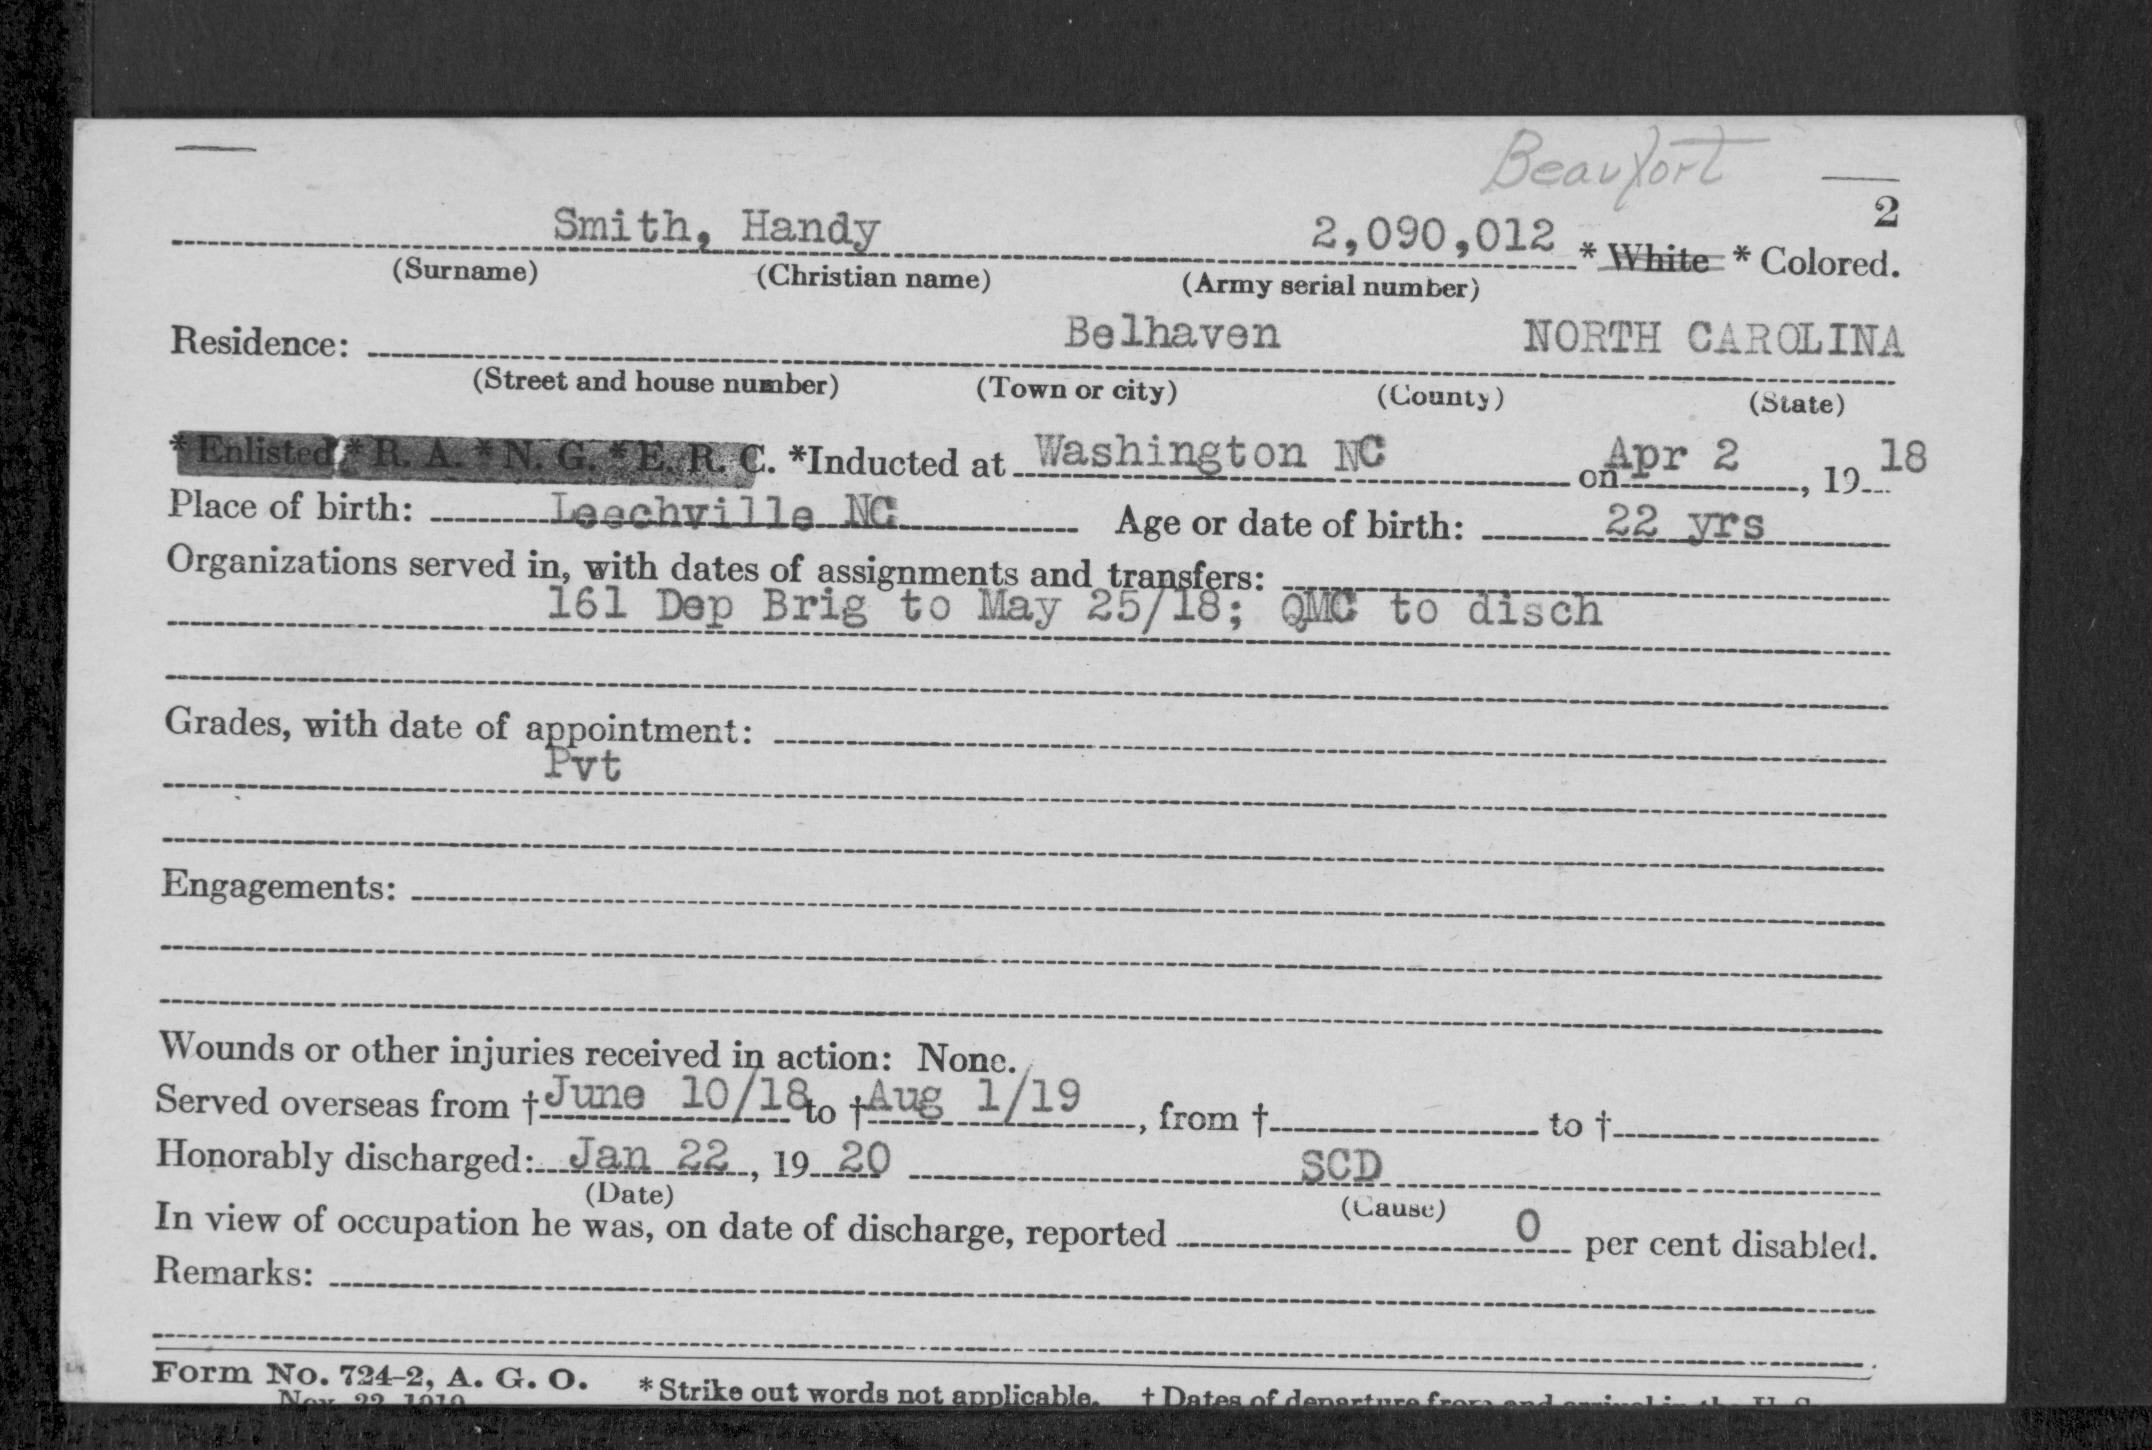 Beaufort
2
Smith, Handy 2,090,012 * White * Colored.
(Surname) (Christian name) (Army serial number)
Residence: Belhaven NORTH CAROLINA
(Street and house number) (Town or city) (County) (State)
* Enlisted * R. A. * N. G. * E. R. C. *Inducted at Washington NC on Apr 2, 19 18
Place of birth: Leechville NC Age or date of birth: 22 yrs
Organizations served in, with dates of assignments and transfers:
161 Dep Brig to May 25/18; QMC to disch
Grades, with date of appointment:
Pvt
Engagements:
Wounds or other injuries received in action: None.
Served overseas from † June 10/18 to † Aug 1/19, from † to †
Honorably discharged: Jan 22, 19 20 SCD
(Date) (Cause)
In view of occupation he was, on date of discharge, reported 0 per cent disabled.
Remarks:
Form No. 724-2, A. G. O. * Strike out words not applicable. † Dates of departure from and arrival in the U. S.
Nov. 22, 1919